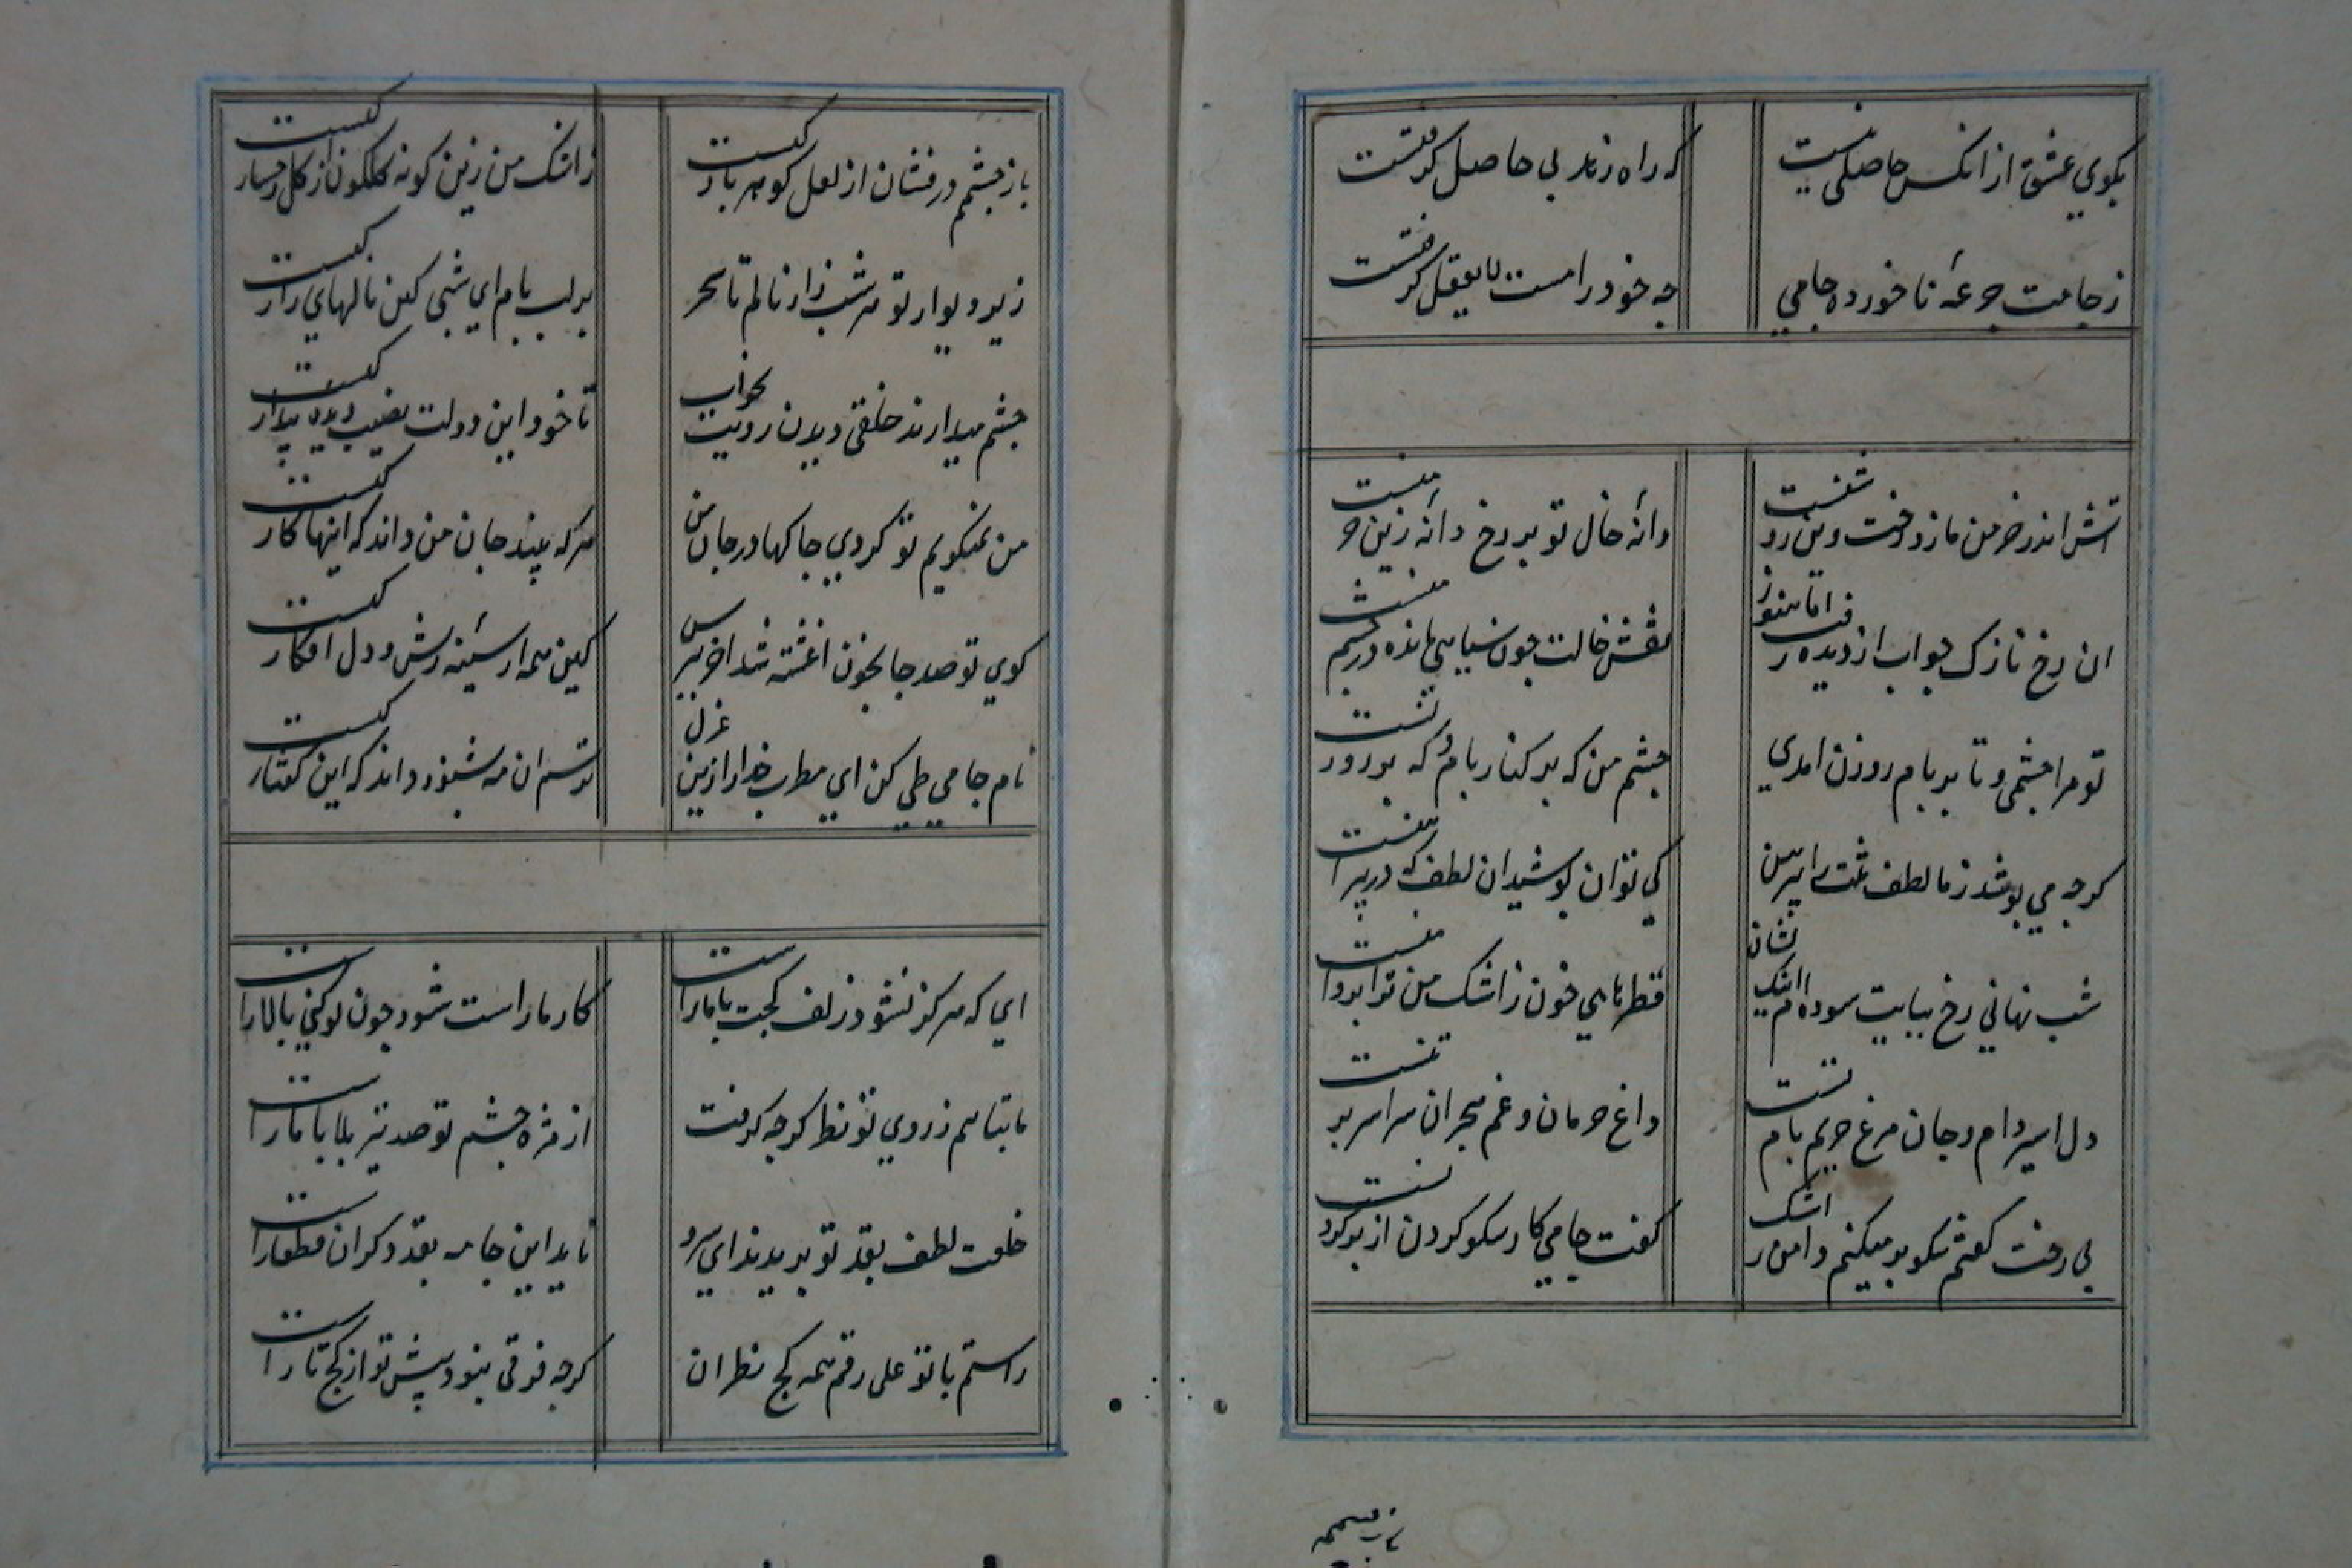 بکوی عشق از انکس حاصلی نیست
که راه زند بی حاصل کرفتست
ز جامت جرعۀ ناخورده جامی
چه خود را مست لا یعقل کرفتست
اتش اندر خرمن ما زد رخت وین روشنست
دانۀ خال تو بر رخ دانۀ زین خرمنست
ان رخ نازک چو اب از دیده رفت اما هنوز
نقش خالت چون سیاهی مانده در چشم منست
تو مرا چشمی و تا بر بام روزن امدی
چشم من که بر کنار بام و که بر روزنست
کرچه می پوشد ز ما لطف تنت را پیرهن
کی توان پوشیدن ان لطفی که در پیراهنست
شب نهانی رخ بپایت سوده ام اینک نشان
قطرهای خون ز اشک من ترا بر دامنست
دل اسیر دام و جان مرغ حریم بام تست
داغ حرمان و غم هجران سراسر بر تنست
بی رخت کفتم نکو پر میکنم دامن ز اشک
کفت جامی کار نیکو کردن از پر کردنست
باز چشم درفشان از لعل کوهر بار کیست
ز اشک من زین کونه کلکون از کل رخسار کیست
زیر دیوار تو هر شب زار نالم تا سحر
بر لب بام ای شبی کین نالهای زار کیست
چشم میدارند خلقی دیدن رویت بخواب
تا خود این دولت نصیب دیده بیدار کیست
من نمیکویم تو کردی چاکها در جان من
هر که بیند جان من داند که اینها کار کیست
کوی تو صد جا بخون اغشته شد اخر بپرس
کین همه از سینه ریش و دل افکار کیست
نام جامی طی کن ای مطرب خدا را زین غزل
ترسم ان مه بشنود داند که این کفتار کیست
ای که هرکز نشود زلف کجت با ما راست
کار ما راست شود چون تو کنی بالا راست
ما نتابیم ز روی تو نظر کرچه کرفت
از مژه چشم تو صد تیر بلا با ما راست
خلعت لطف بقد تو بریدند ای سرو
ناید این جامه بقد دکران قطعا راست
راستم با تو علی رغم همه کج نظران
کرچه فرقی نبود پیش تو از کج تا راست